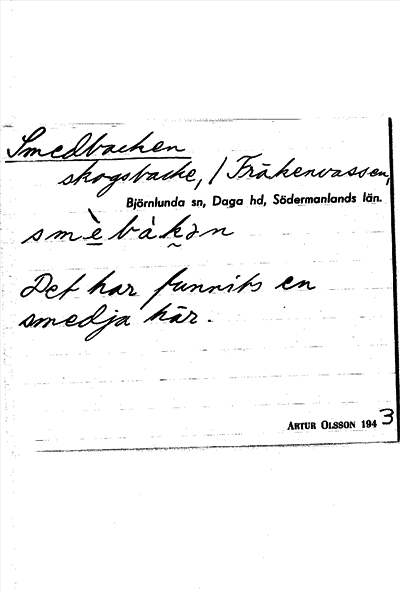 Smedbacken
skogsbacke, / Fräkenvassen,
Björnlunda sn, Daga hd, Södermanlands län.
smè̱bàk̰ən
Det har funnits en
smedja här.
ARTUR OLSSON 1943